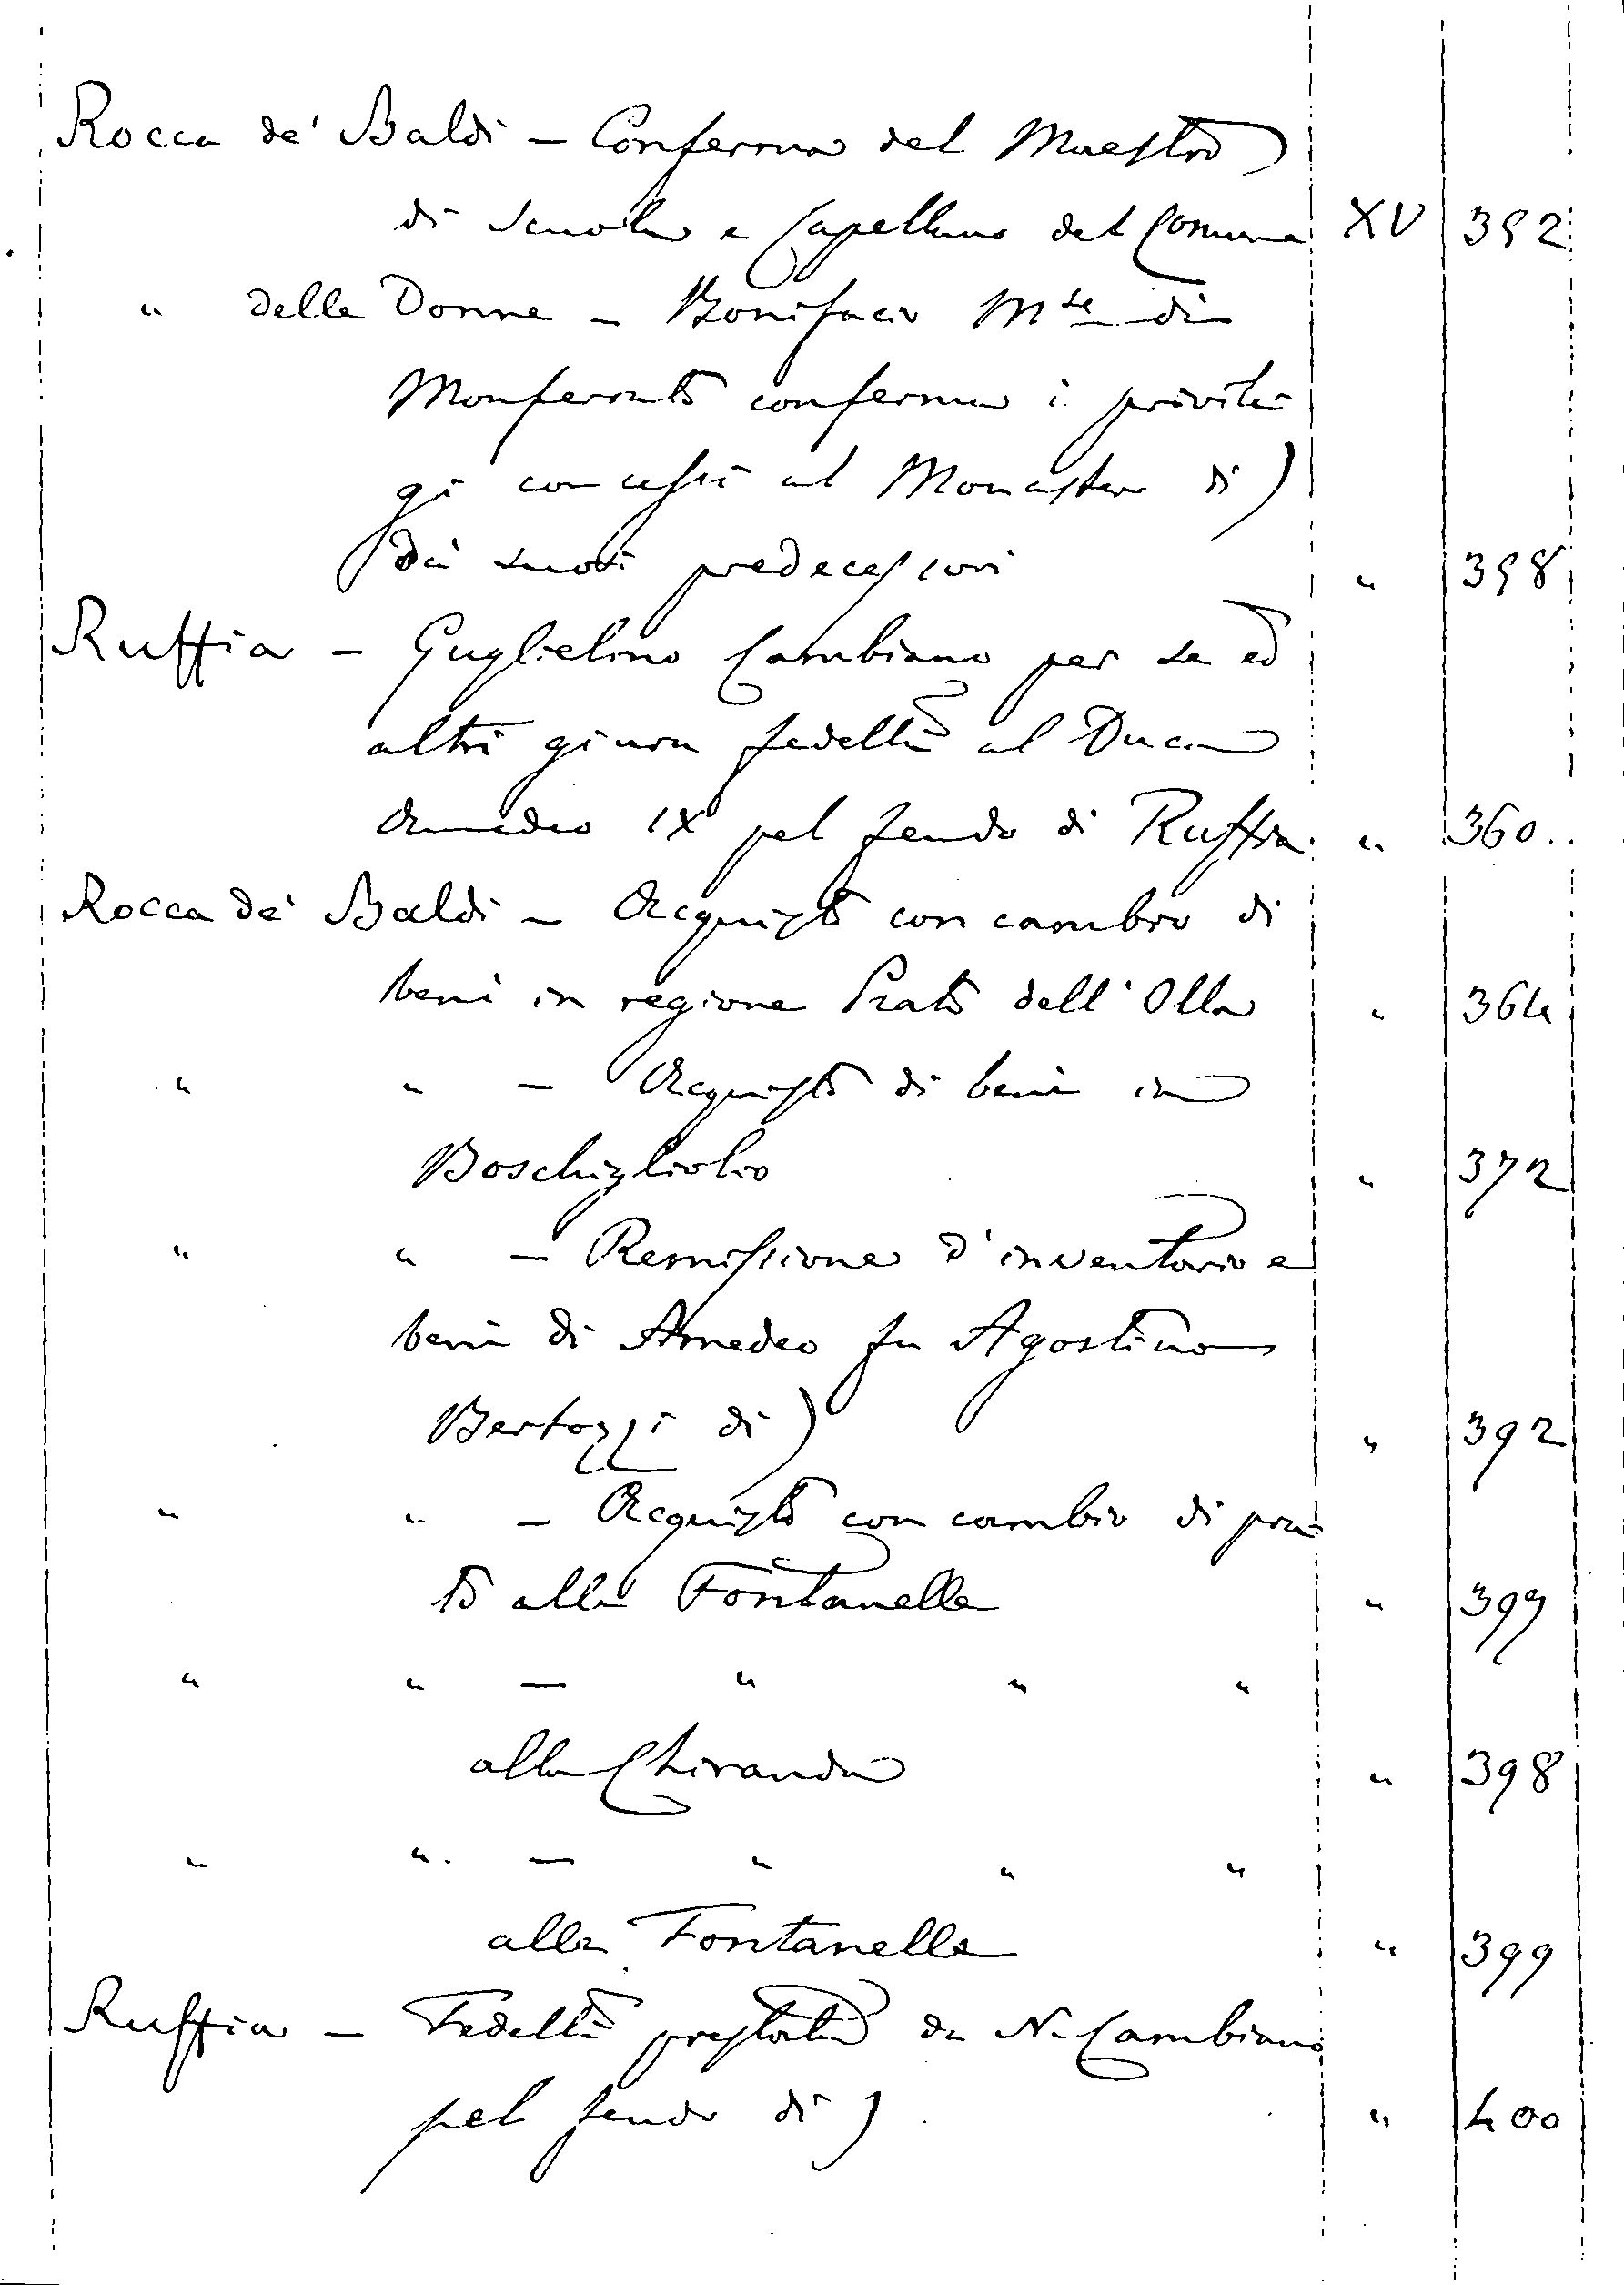 Rocca de' Baldi – Conferma del Maestro
di Scuola e Capellano del Comune XV 352
" delle Donne – Bonifacio Mse di
Monferrato conferma i privile
gi concessi al Monastero di)
dai suoi predecessori " 358
Ruffia – Guglielmo Cambiano per se ed
altri giura fedeltà al Duca
Amedeo IX pel feudo di Ruffia " 360
Rocca de' Baldi – Acquisto con cambio di
beni in regione Prato dell'Olla " 364
" " – Acquisto di beni in
Boschigliolio " 372
" " – Remissione d'inventario e
beni di Amedeo fu Agostino
Bertozzi di) " 392
" " – Acquisto con cambio di pra-
to alla Fontanella " 397
" " – " " "
alla Chiranda " 398
" " – " " "
alla Fontanella " 399
Ruffia – Fedeltà prestata da N. Cambiano
pel feudo di) " 400